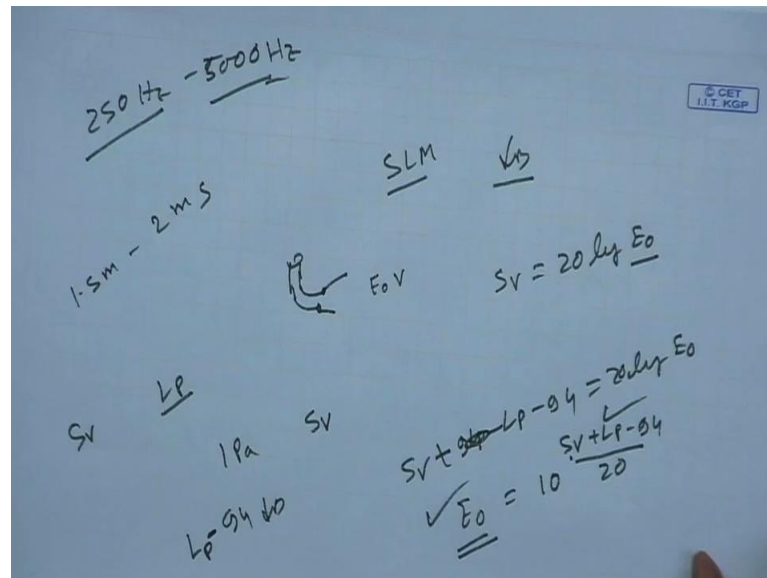 250 Hz - 5000 Hz
© CET
I.I.T. KGP
SLM
1.5m - 2 m s
E₀ V
Sv = 20 log E₀
Sv
LP
1 Pa
Sv
Sv + LP - 94 = 20 log E₀
Lp - 94 db
E₀ = 10 Sv + LP - 94 / 20